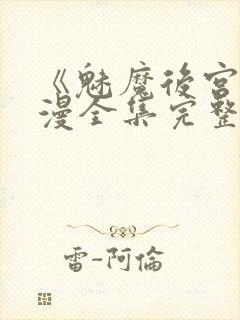 《魅魔後宮
漫全集完整
雷-阿倫